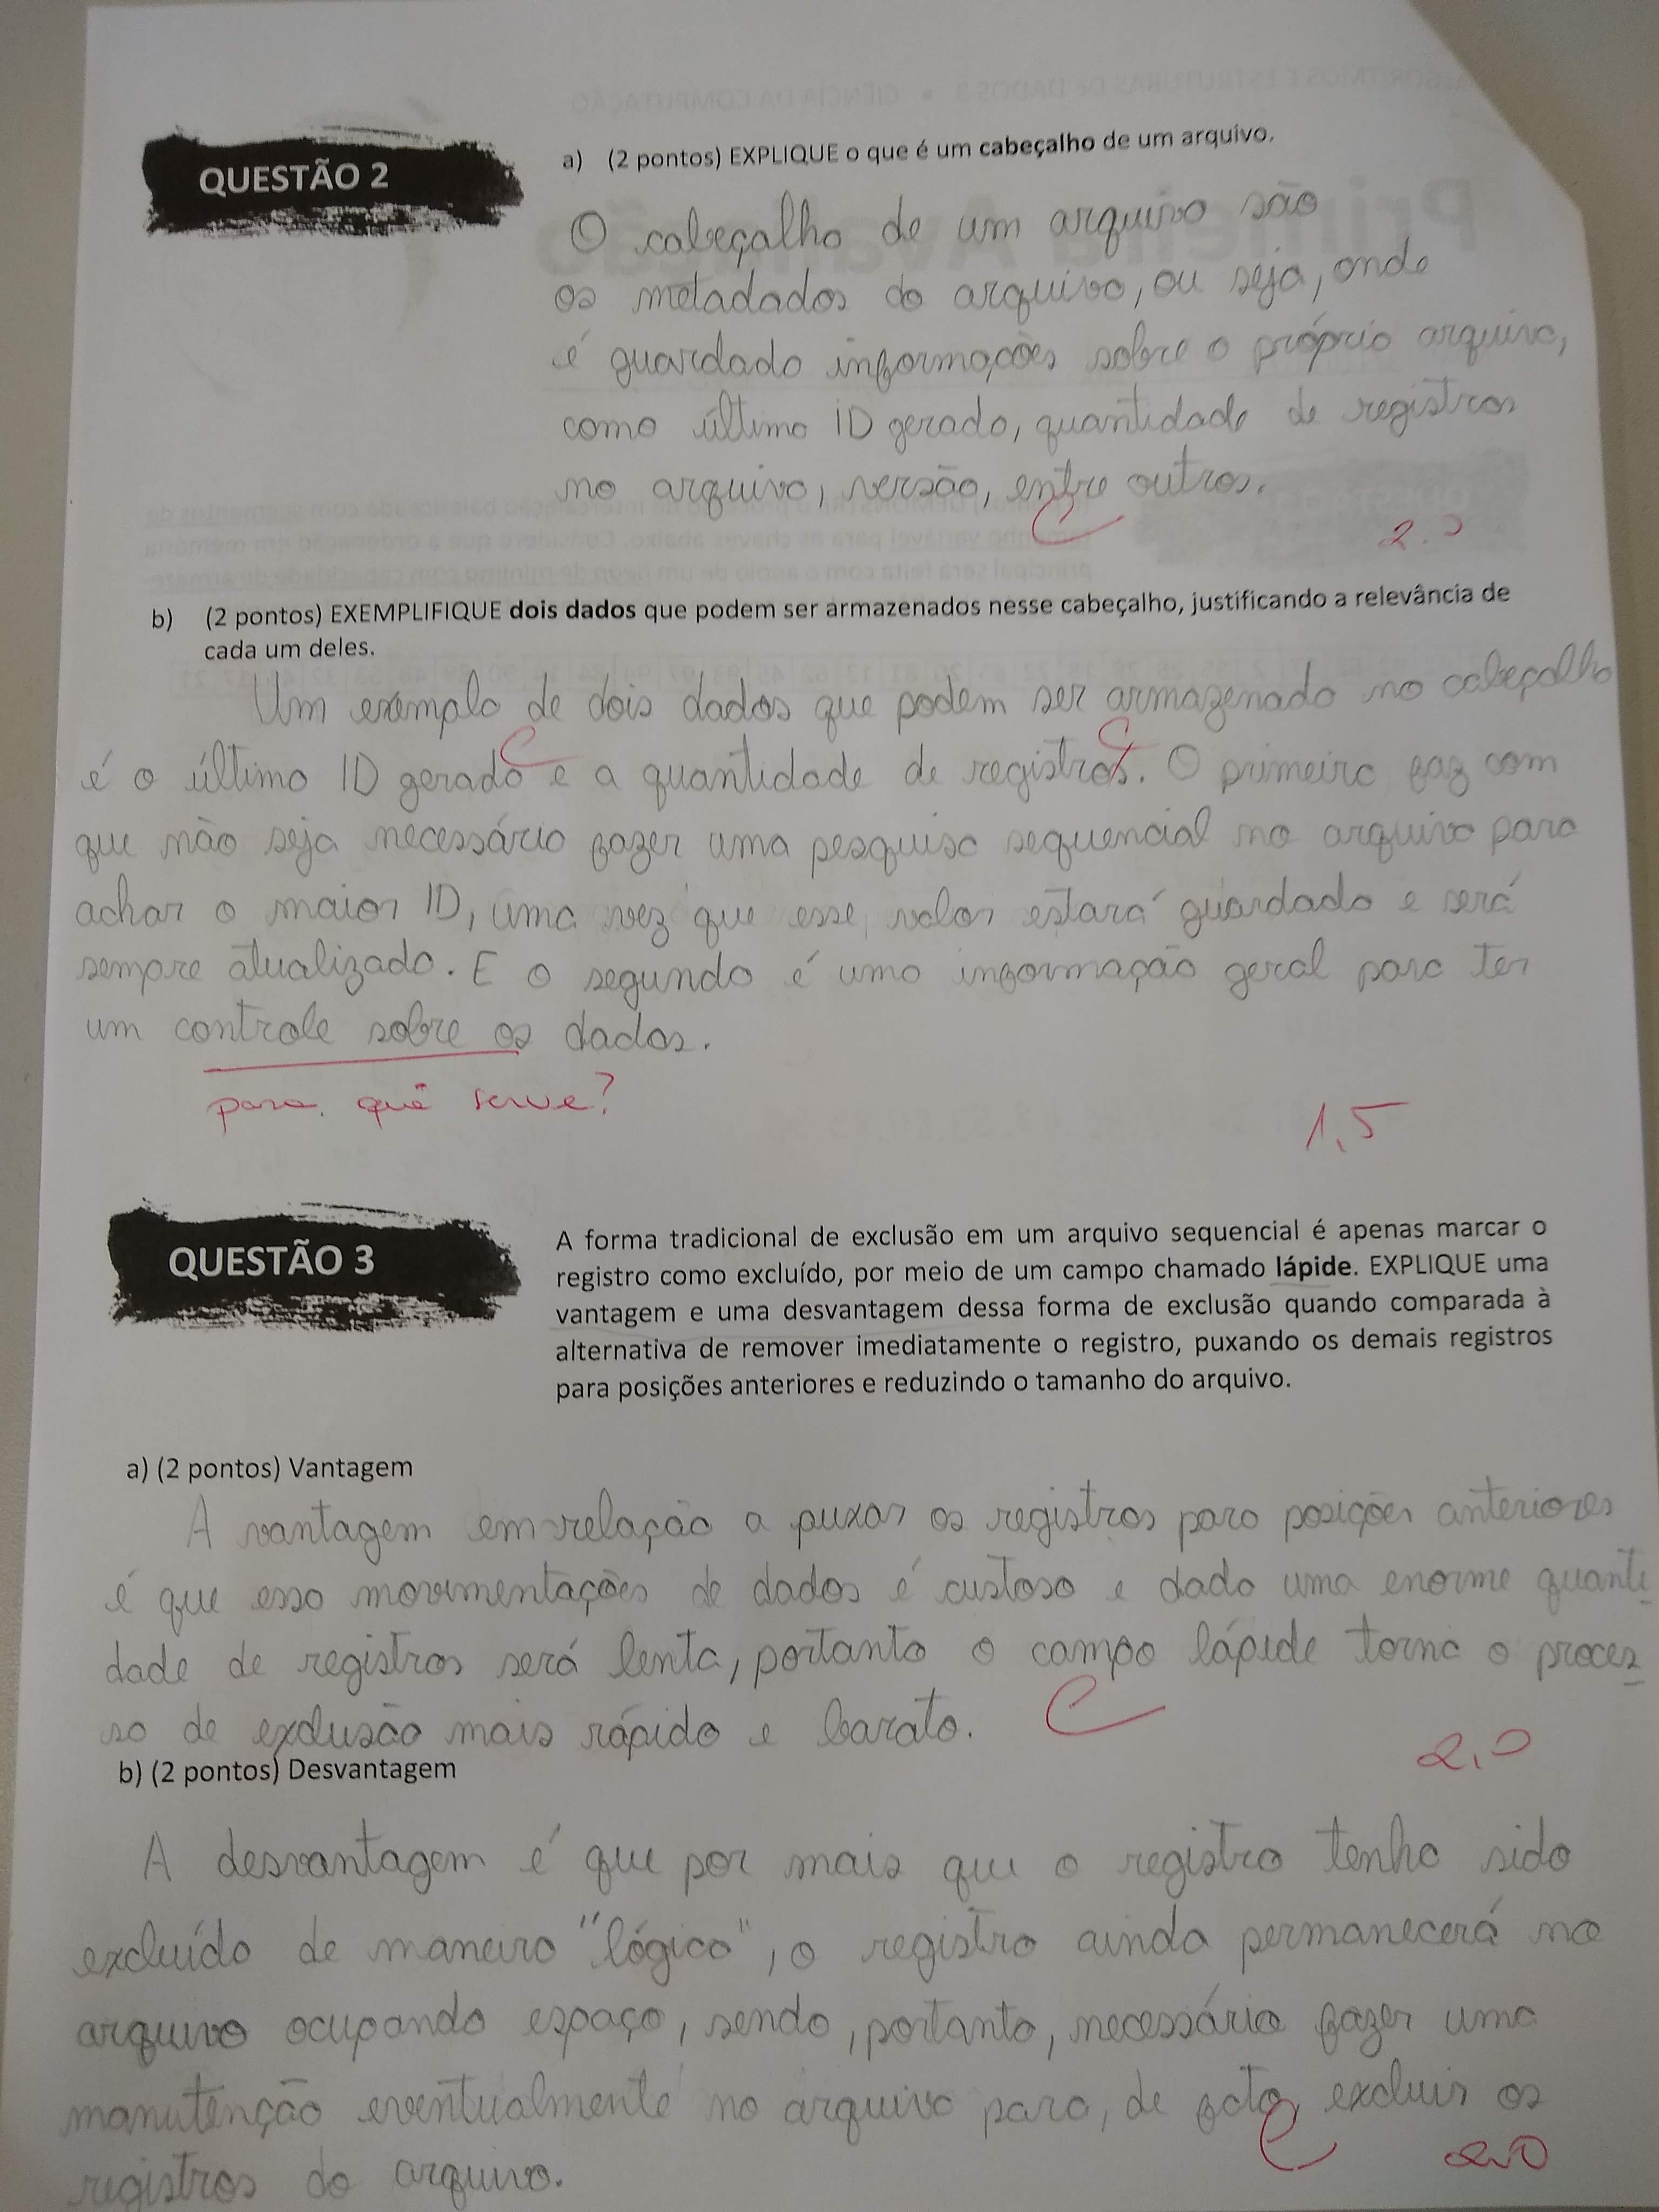 ALGORITMOS E ESTRUTURAS DE DADOS 3 • CIÊNCIA DA COMPUTAÇÃO
Primeira Avaliação
QUESTÃO 2
a) (2 pontos) EXPLIQUE o que é um cabeçalho de um arquivo.
O cabeçalho de um arquivo são
os metadados do arquivo, ou seja, onde
é guardado informações sobre o próprio arquivo,
como último ID gerado, quantidade de registros
no arquivo, versão, entre outros.
C
2.0
b) (2 pontos) EXEMPLIFIQUE dois dados que podem ser armazenados nesse cabeçalho, justificando a relevância de
cada um deles.
Um exemplo de dois dados que podem ser armazenado no cabeçalho
C C
é o último ID gerado e a quantidade de registros. O primeiro faz com
que não seja necessário fazer uma pesquisa sequencial no arquivo para
achar o maior ID, uma vez que esse valor estará guardado e será
sempre atualizado. E o segundo é uma informação geral para ter
um controle sobre os dados.
para quê serve?
1,5
QUESTÃO 3
A forma tradicional de exclusão em um arquivo sequencial é apenas marcar o
registro como excluído, por meio de um campo chamado lápide. EXPLIQUE uma
vantagem e uma desvantagem dessa forma de exclusão quando comparada à
alternativa de remover imediatamente o registro, puxando os demais registros
para posições anteriores e reduzindo o tamanho do arquivo.
a) (2 pontos) Vantagem
A vantagem em relação a puxar os registros para posições anteriores
é que essa movimentações de dados é custoso e dado uma enorme quanti
dade de registros será lenta, portanto o campo lápide torna o proces
so de exclusão mais rápido e barato.
C
2,0
b) (2 pontos) Desvantagem
A desvantagem é que por mais que o registro tenha sido
excluído de maneira "lógica", o registro ainda permanecerá no
arquivo ocupando espaço, sendo, portanto, necessário fazer uma
manutenção eventualmente no arquivo para, de fato, excluir os
registros do arquivo.
C
2,0